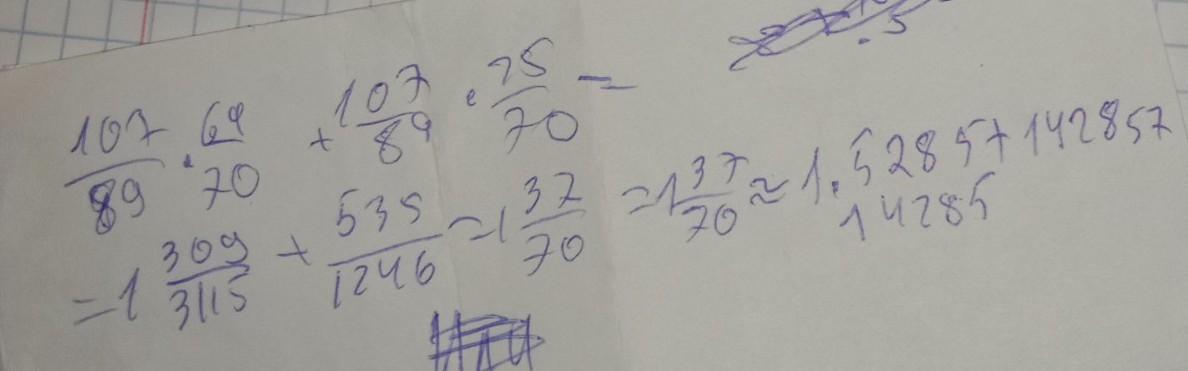 107/89 · 64/70 + 107/89 · 25/70 =
= 1 309/3115 + 535/1246 = 1 37/70 = 1 37/70 ≈ 1.52857142857
14285